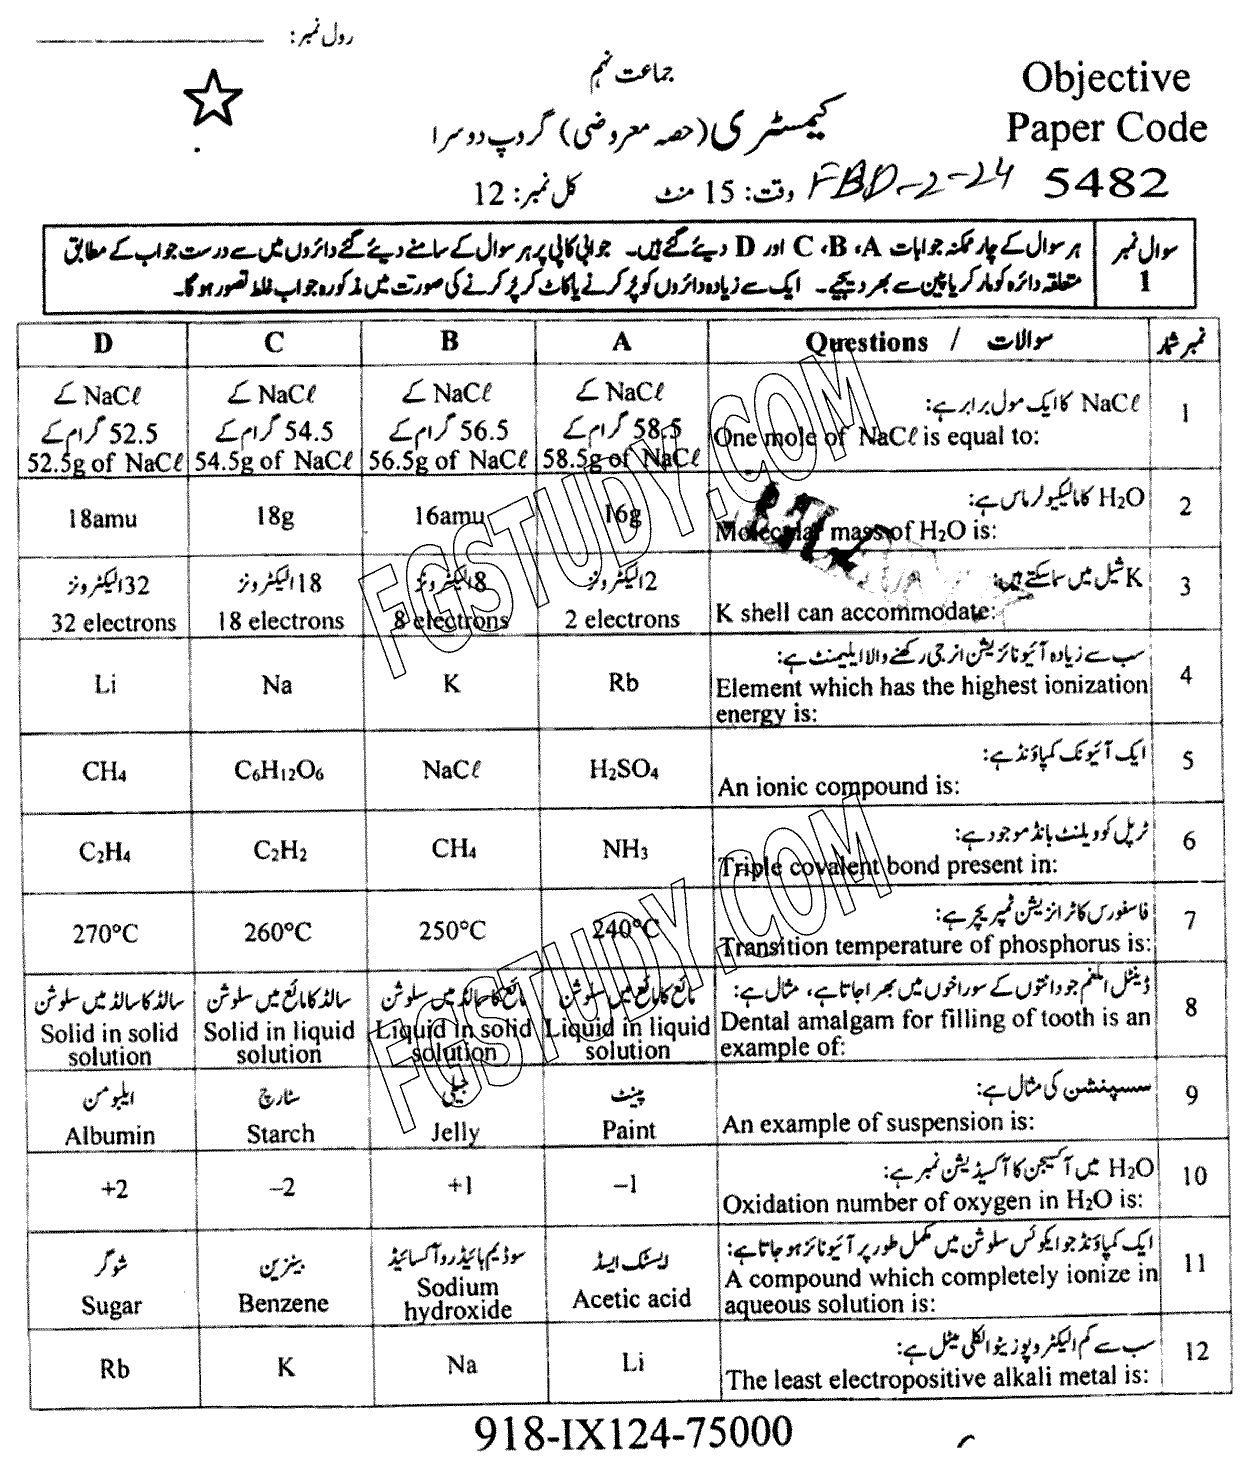 رول نمبر: ــــــــــــــــ
جماعت نہم
Objective
Paper Code
5482
کیمسٹری (حصہ معروضی) گروپ دوسرا
FBD-2-24
وقت: 15 منٹ
کل نمبر: 12
سوال نمبر 1
ہر سوال کے چار ممکنہ جوابات A، B، C اور D دیئے گئے ہیں۔ جوابی کاپی پر ہر سوال کے سامنے دیئے گئے دائروں میں سے درست جواب کے مطابق
متعلقہ دائرہ کو مارکر یا پین سے بھر دیجیے۔ ایک سے زیادہ دائروں کو پُر کرنے یا کاٹ کر پُر کرنے کی صورت میں مذکورہ جواب غلط تصور ہو گا۔
نمبر شمار
سوالات / Questions
A
B
C
D
1
NaCℓ کا ایک مول برابر ہے:
One mole of NaCℓ is equal to:
NaCℓ کے
58.5 گرام کے
58.5g of NaCℓ
NaCℓ کے
56.5 گرام کے
56.5g of NaCℓ
NaCℓ کے
54.5 گرام کے
54.5g of NaCℓ
NaCℓ کے
52.5 گرام کے
52.5g of NaCℓ
2
H₂O کا مالیکیولر ماس ہے:
Molecular mass of H₂O is:
16g
16amu
18g
18amu
3
K شیل میں سما سکتے ہیں:
K shell can accommodate:
2 الیکٹرونز
2 electrons
8 الیکٹرونز
8 electrons
18 الیکٹرونز
18 electrons
32 الیکٹرونز
32 electrons
4
سب سے زیادہ آئیونائزیشن انرجی رکھنے والا ایلیمنٹ ہے:
Element which has the highest ionization
energy is:
Rb
K
Na
Li
5
ایک آئیونک کمپاؤنڈ ہے:
An ionic compound is:
H₂SO₄
NaCℓ
C₆H₁₂O₆
CH₄
6
ٹرپل کوویلنٹ بانڈ موجود ہے:
Triple covalent bond present in:
NH₃
CH₄
C₂H₂
C₂H₄
7
فاسفورس کا ٹرانزیشن ٹمپریچر ہے:
Transition temperature of phosphorus is:
240°C
250°C
260°C
270°C
8
ڈینٹل املغم جو دانتوں کے سوراخوں میں بھرا جاتا ہے، مثال ہے:
Dental amalgam for filling of tooth is an
example of:
مائع کا مائع میں سلوشن
Liquid in liquid
solution
مائع کا سالڈ میں سلوشن
Liquid in solid
solution
سالڈ کا مائع میں سلوشن
Solid in liquid
solution
سالڈ کا سالڈ میں سلوشن
Solid in solid
solution
9
سسپنشن کی مثال ہے:
An example of suspension is:
پینٹ
Paint
جیلی
Jelly
سٹارچ
Starch
ایلبومن
Albumin
10
H₂O میں آکسیجن کا آکسیڈیشن نمبر ہے:
Oxidation number of oxygen in H₂O is:
–1
+1
–2
+2
11
ایک کمپاؤنڈ جو ایکوئس سلوشن میں مکمل طور پر آئیونائز ہو جاتا ہے:
A compound which completely ionize in
aqueous solution is:
ایسٹک ایسڈ
Acetic acid
سوڈیم ہائیڈرو آکسائیڈ
Sodium
hydroxide
بینزین
Benzene
شوگر
Sugar
12
سب سے کم الیکٹرو پوزیٹو الکلی میٹل ہے:
The least electropositive alkali metal is:
Li
Na
K
Rb
918-IX124-75000
FGSTUDY.COM
FGSTUDY.COM